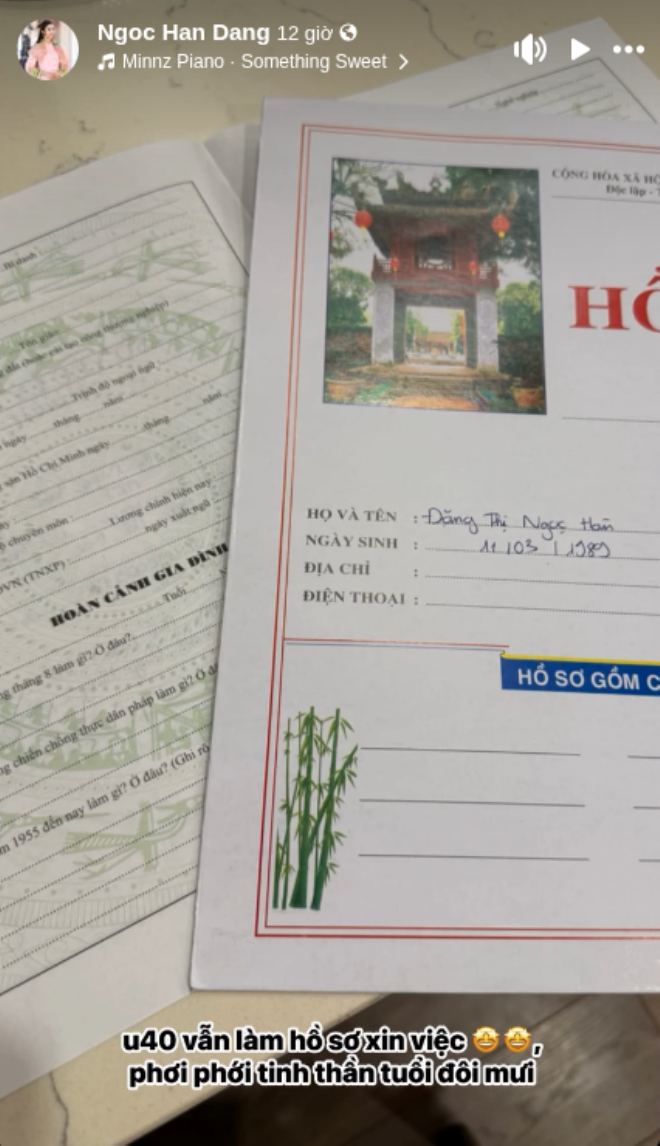 Ngoc Han Dang 12 giờ
Minnz Piano · Something Sweet
Nghề nghiệp
CỘNG HÒA XÃ HỘ
Độc lập - T
HỒ
HỌ VÀ TÊN : Đặng Thị Ngọc Hân
NGÀY SINH : 11 / 03 / 1989
ĐỊA CHỈ :
ĐIỆN THOẠI :
HỒ SƠ GỒM C
Bí danh
Tôn giáo
Trình độ ngoại ngữ
ngày tháng năm
tháng năm
sản Hồ Chí Minh ngày
chuyên môn : Lương chính hiện nay
ngày xuất ngũ
VN (TNXP) :
HOÀN CẢNH GIA ĐÌNH
Tuổi
ng tháng 8 làm gì? Ở đâu?
ng chiến chống thực dân pháp làm gì? Ở đ
m 1955 đến nay làm gì? Ở đâu? (Ghi rõ
u40 vẫn làm hồ sơ xin việc 🤩🤩,
phơi phới tinh thần tuổi đôi mươi